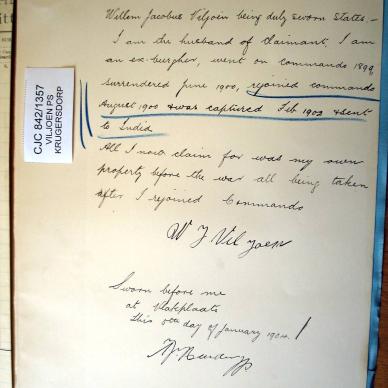 Willem Jacobus Viljoen being duly sworn states:-
I am the husband of Claimant. I am
an ex-burgher, went on commando 1899,
surrendered June 1900, rejoined commando
August 1900 & was captured Feb 1902 & sent
to India
All I now claim for was my own
property before the war all being taken
after I rejoined Commando
W J Viljoen
Sworn before me
at Vlakplaats
this day of January 1904
CJC 842/1357
VILJOEN PS
KRUGERSDORP